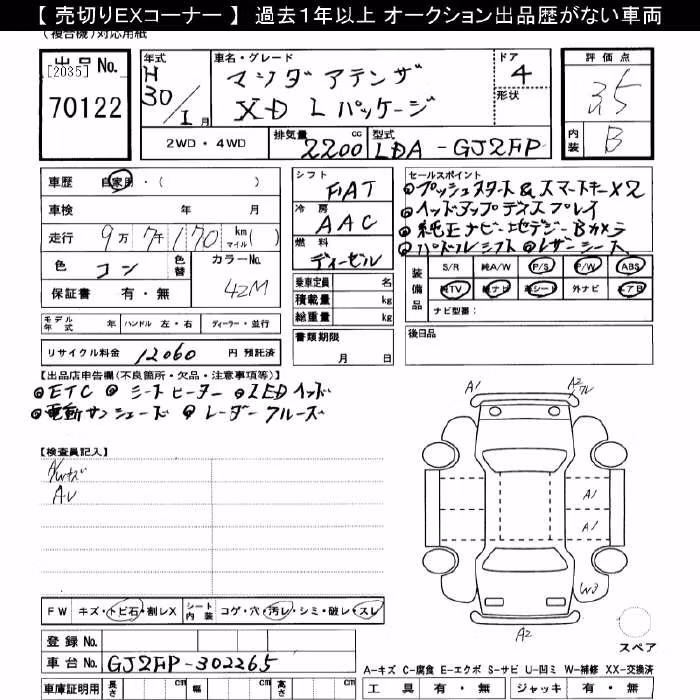 【 売切りEXコーナー 】 過去1年以上 オークション出品歴がない車両
(複合機)対応用紙
出品 No.
[2035]
70122
年式
H
30/1月
車名・グレード
マツダ アテンザ
XD Lパッケージ
ドア
4
形状
評価点
3.5
内装
B
2WD・4WD
排気量
2200 cc
型式
LDA-GJ2FP
車歴 自家用・( )
車検 年 月
走行 9万 7千 170 km マイル( )
色 コン
色替
カラーNo.
42M
保証書 有・無
シフト
FAT
冷房
AAC
燃料
ディーゼル
乗車定員 名
積載量 kg
総重量 kg
セールスポイント
◎プッシュスタート&スマートキーX2
◎ヘッドアップディスプレイ
◎純正ナビ・地デジ・Bカメラ
◎パドルシフト ◎レザーシート
装備品
S/R 純A/W P/S P/W ABS
純TV 純ナビ 革シート 外ナビ エアB
ナビ型番:
モデル年式 年 ハンドル 左・右 ディーラー・並行
リサイクル料金 12060 円 預託済
書類期限
月 日
後日品
【出品店申告欄(不良箇所・欠品・注意事項等)】
◎ETC ◎シートヒーター ◎LEDヘッド
◎電動サンシェード ◎レーダークルーズ
【検査員記入】
A1
A2
A1
A1
W3
A2
FW キズ・トビ石・割レX
シート内装 コゲ・穴・汚レ・シミ・破レ・スレ
登録 No.
車台 No. GJ2FP-302265
車庫証明用 長さ cm 幅 cm 高さ cm
スペア
A-キズ C-腐食 E-エクボ S-サビ U-凹ミ W-補修 XX-交換済
工具 有・無 ジャッキ 有・無